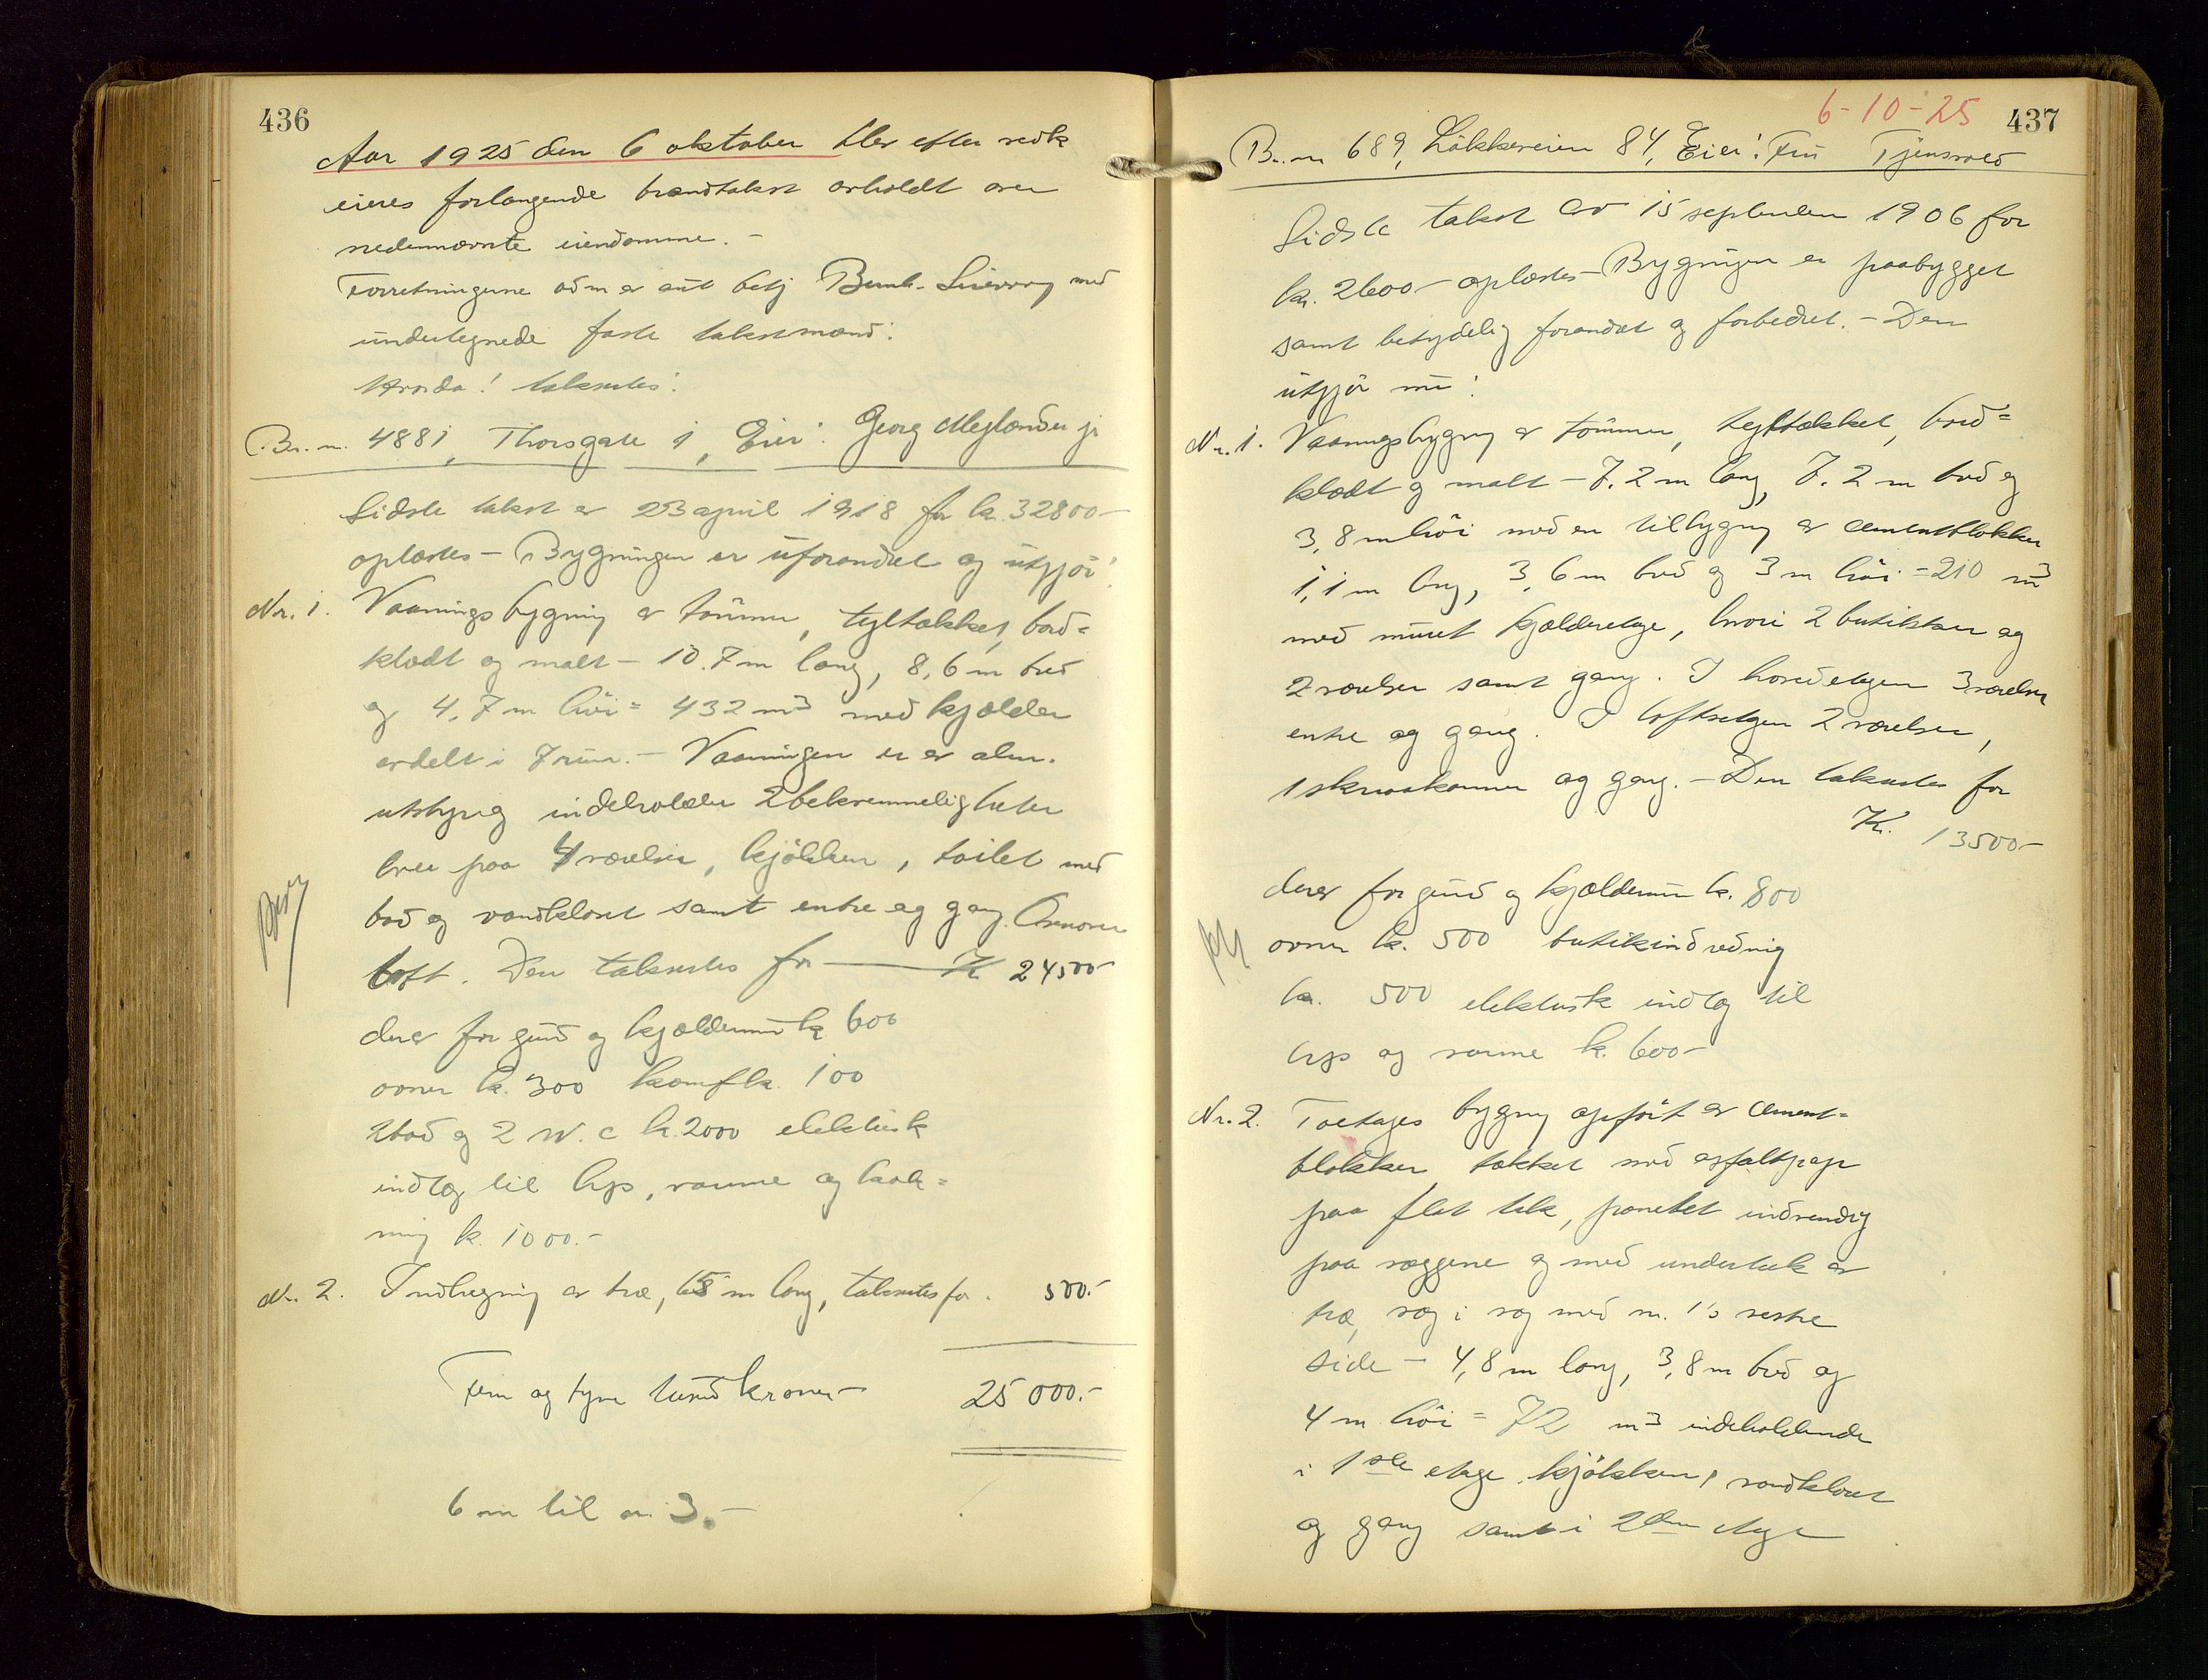 436
Aar 1925 den 6 oktober blev efter vedk
eieres forlangende brandtakst avholdt over
nedennævnte eiendomme. -
Forretningerne adm av aut betj Bernh. med
undertegnede faste takstmænd:
Hvorda! takseredes:
Br. nr. 4881, Thorsgate 1, Eier: Georg Meglænder jr
Sidste takst av 23 april 1918 for kr. 32800-
oplæstes - Bygningen er uforandret og utgjör:
Nr. 1. Vaaningsbygning av tömmer, tegltækket, bord=
klædt og malt - 10.7 m lang, 8,6 m bred
og 4,7 m höi = 432 m3 med kjælder
avdelt i 7 rum. - Vaaningen er av alm.
utstyr og indeholder 2 bekvemmeligheter
hver paa 4 værelser, kjökken, toilet med
bad og vandkloset samt entre og gang. Ovenover
loft. Den taksertes for — Kr 24500-
derav for grund og kjældermur kr 600
ovner kr. 300 komf kr. 100
2 bad og 2 W.c kr. 2000 elektrisk
indlæg til lys, varme og kok=
ning kr. 1000.-
Nr. 2. Indhegning av træ, m lang, taksertes for . 500.-
Fem og tyve tusind kroner - 25 000.-
6 m til nr. 3.-
6-10-25 437
Br. nr 689, Lökkeveien 84, Eier: Fru Tjensvold
Sidste takst av 15 september 1906 for
kr. 2600- oplæstes - Bygningen er paabygget
samt betydelig forandret og forbedret. - Den
utgjör nu:
Nr. 1. Vaaningsbygning av tömmer, tegltækket, bord=
klædt og malt - 7.2 m lang, 7.2 m bred og
3,8 m höi med en tilbygning av cementblokker
1,1 m lang, 3,6 m bred og 3 m höi = 210 m3
med muret kjælderetage, hvori 2 butikker og
2 værelser samt gang. I hovedetagen 3 værelser
entre og gang. I loftsetagen 2 værelser,
1 skraakammer og gang. - Den taksertes for
Kr. 13500-
derav for grund og kjældermur kr. 800
ovner kr. 500 butikindredning
kr. 500 elektrisk indlæg til
lys og varme kr. 600-
Nr. 2. Toetages bygning opfört av cement=
blokker, tækket med asfaltpap
paa flat tak, panelet indvendig
paa væggene og med undertak av
træ, væg i væg med nr. 1's vestre
side - 4,8 m lang, 3,8 m bred og
4 m höi = 72 m3 indeholdende
i 1ste etage kjökken, vandkloset
og gang samt i 2den etage